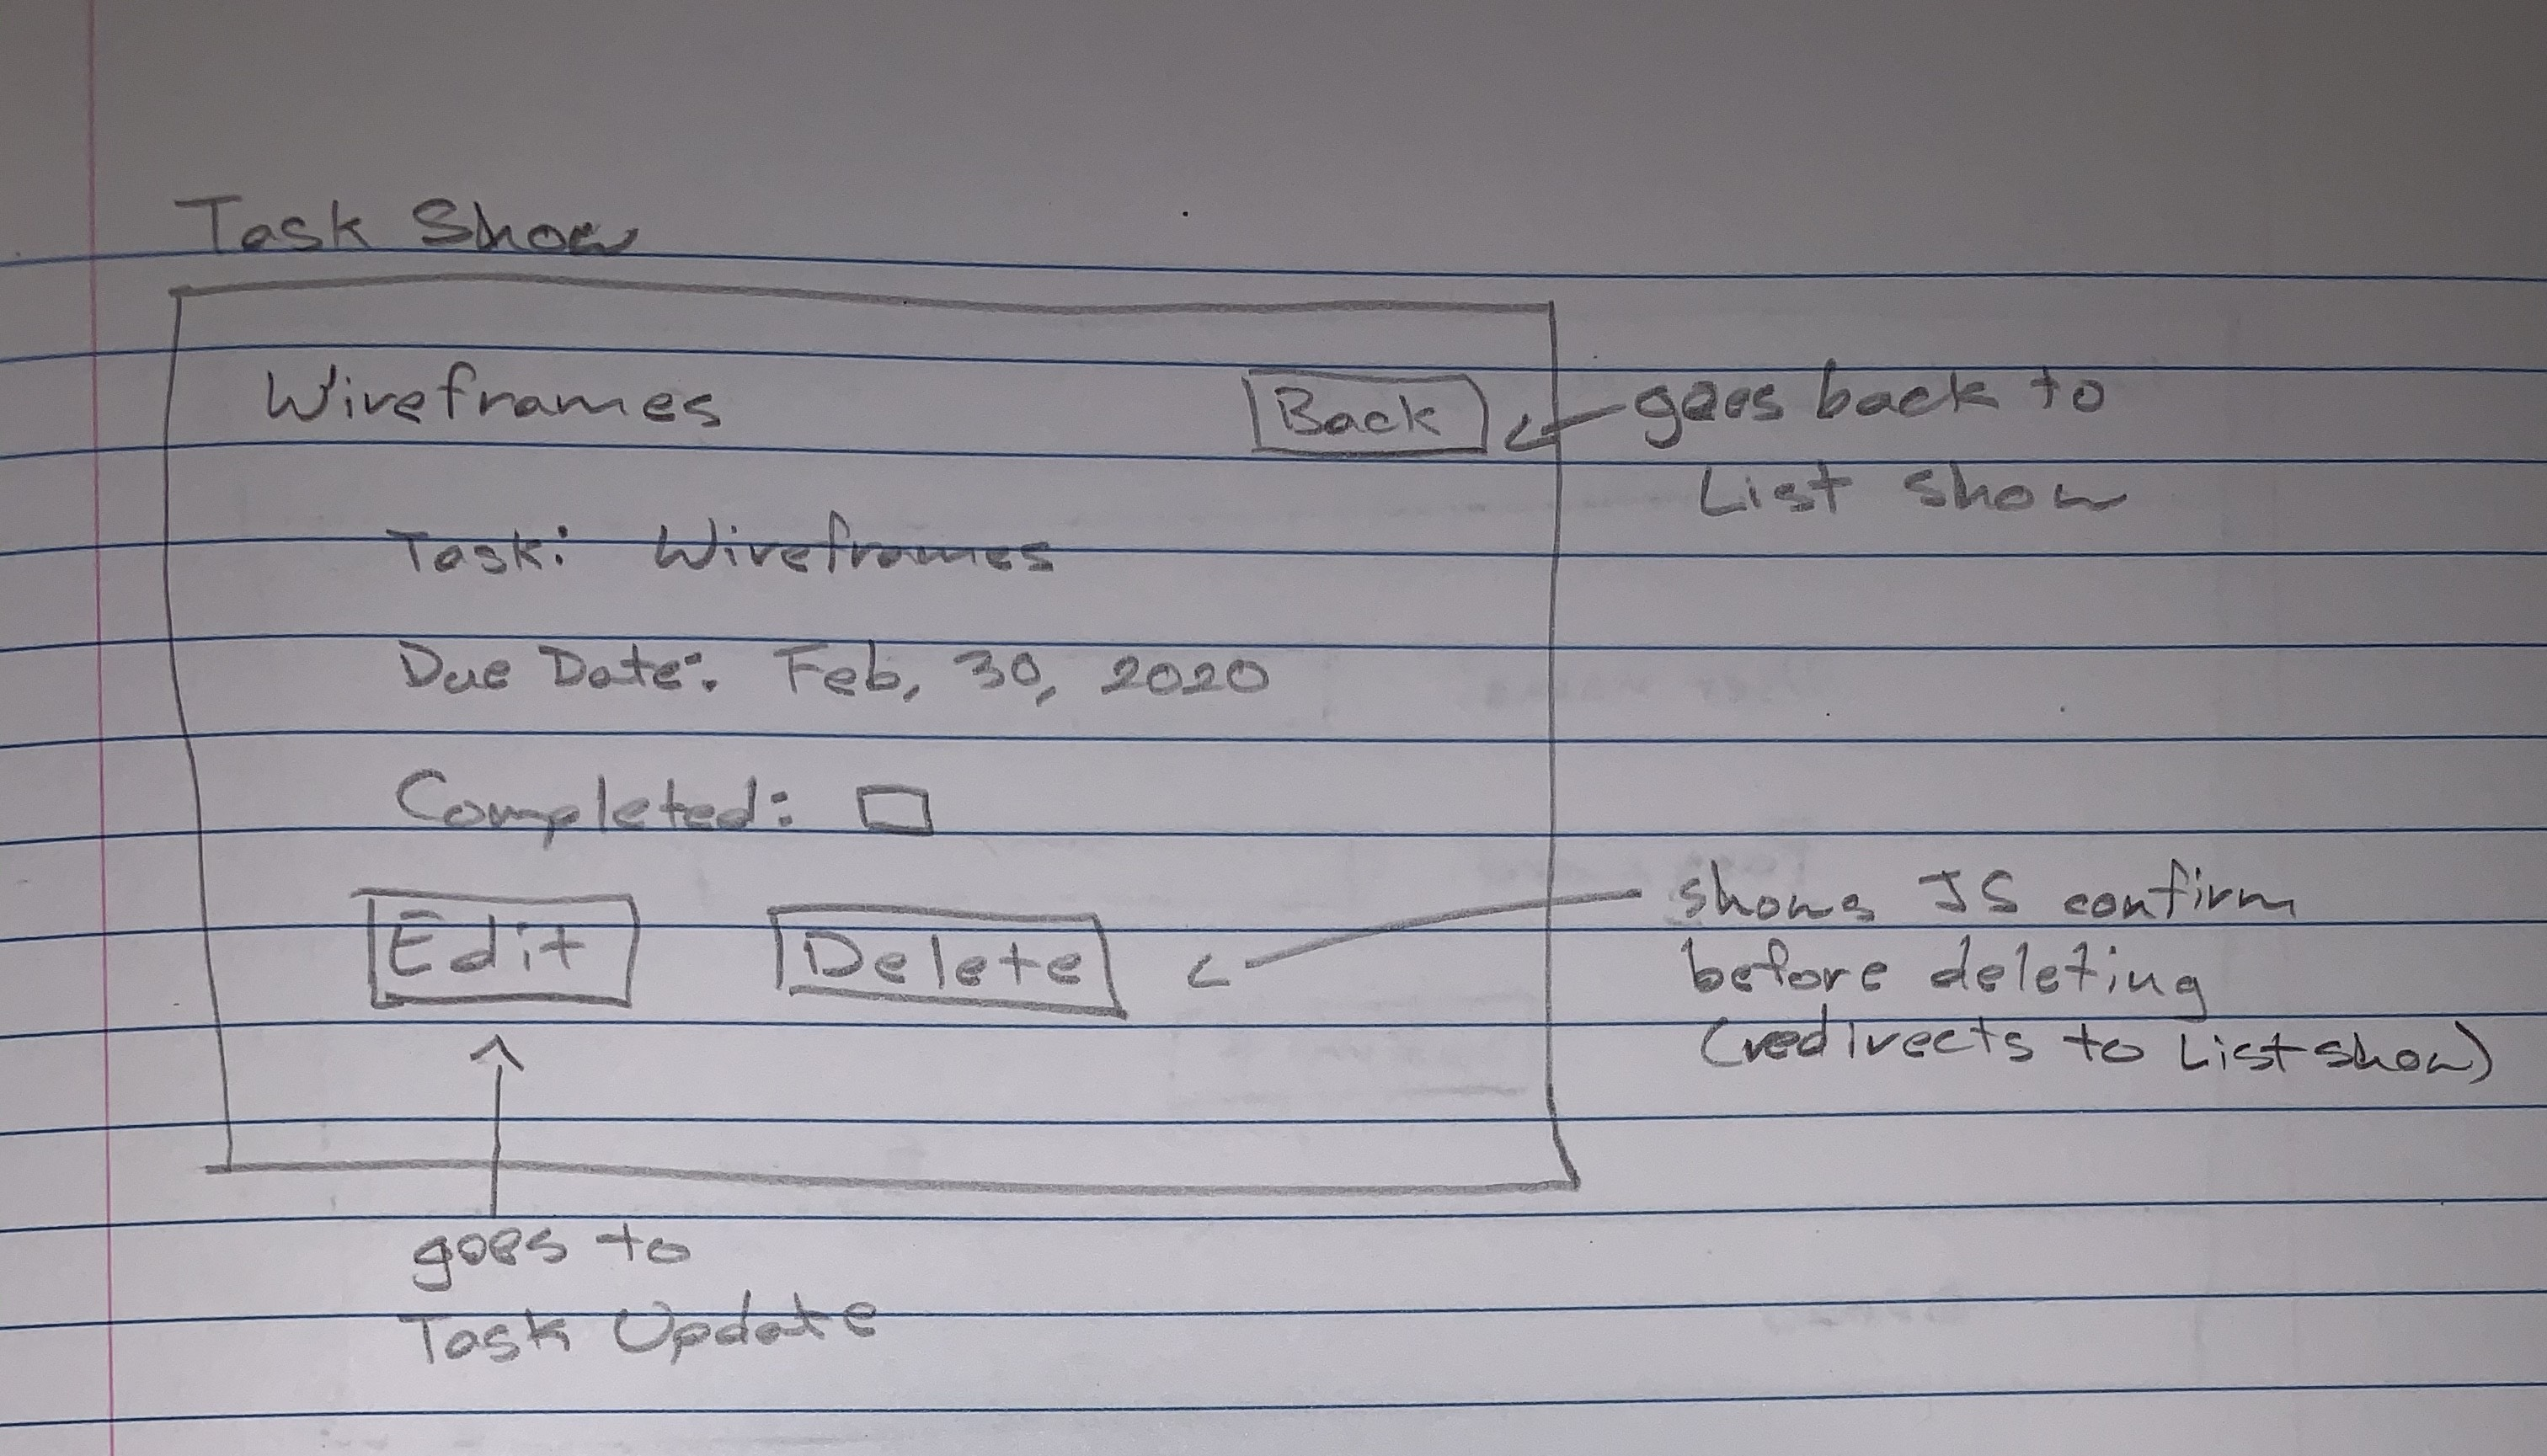 Task Show
Wireframes
Back
goes back to
List show
Task: Wireframes
Due Date: Feb, 30, 2020
Completed:
Edit
Delete
shows JS confirm
before deleting
(redirects to List show)
goes to
Task Update